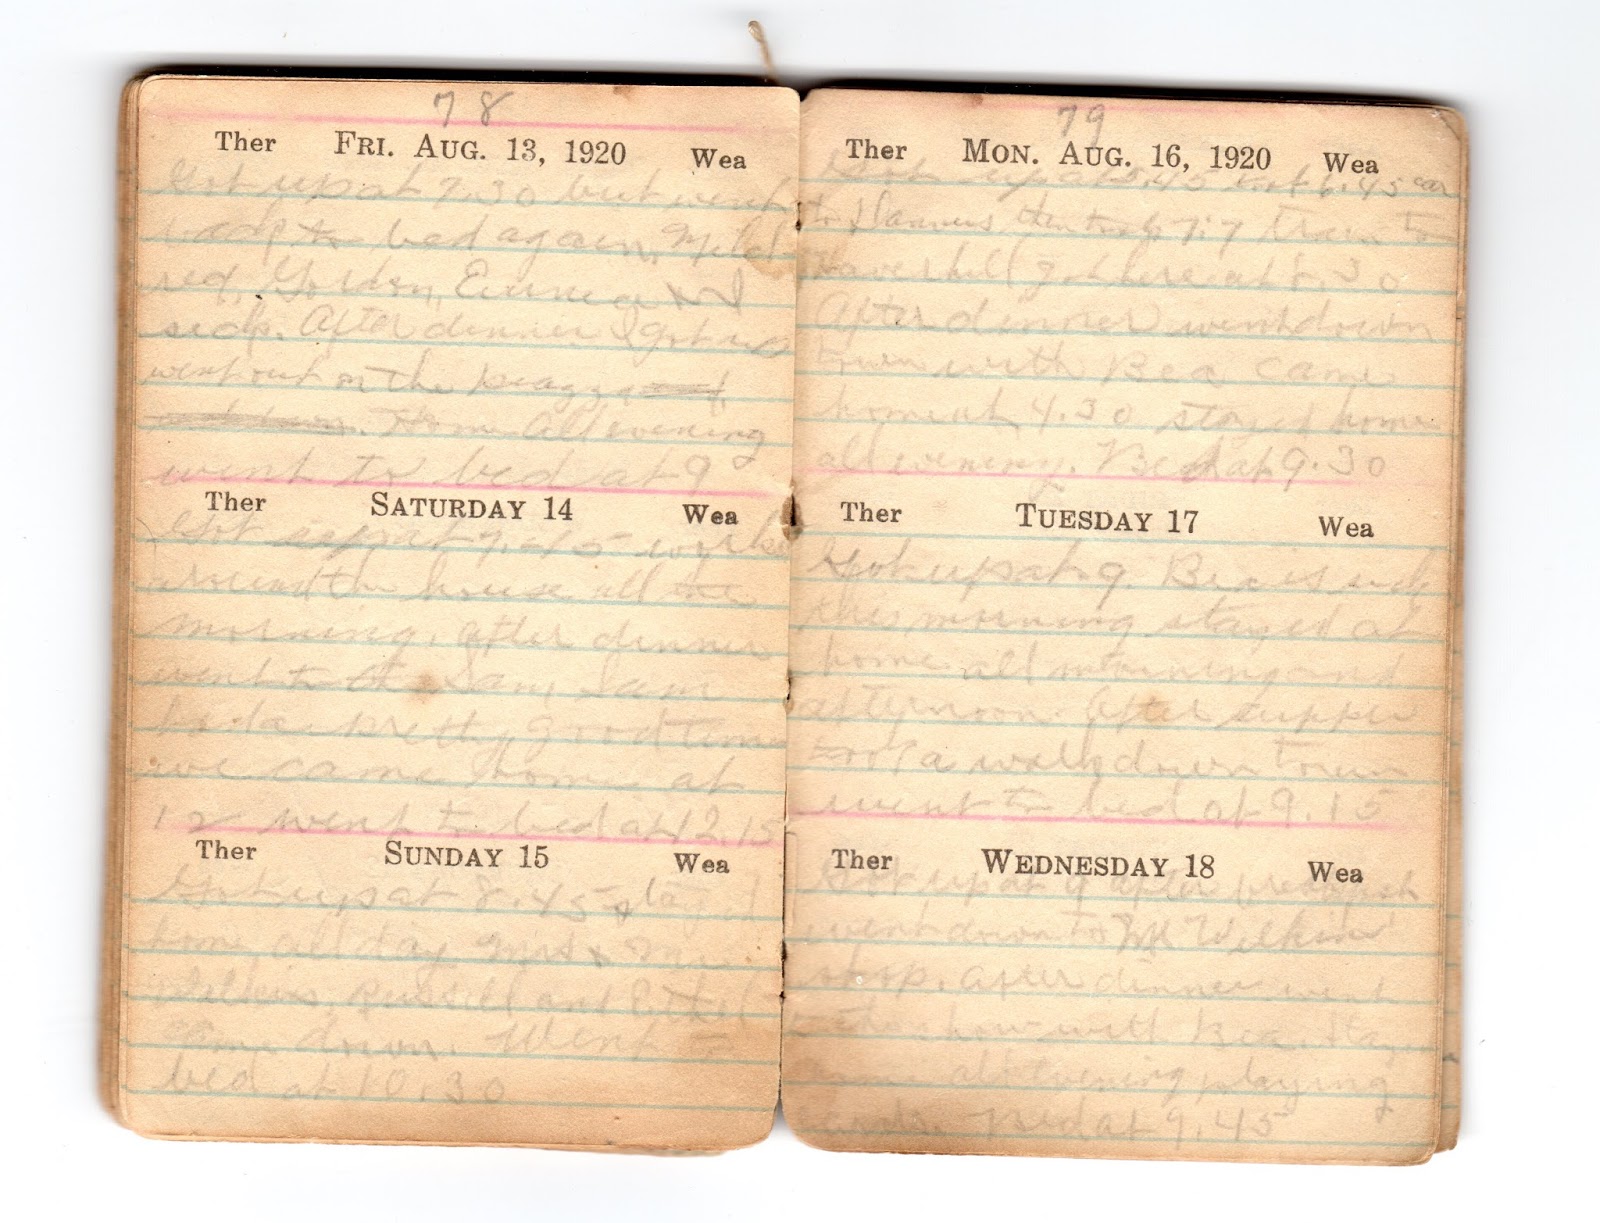 78
Ther FRI. AUG. 13, 1920 Wea
Got up at 7.30 but went
back to bed again. Mild
red, Gordon, Eunice & I
sick. After dinner I got up
went out on the peazza
Home all evening
went to bed at 9
Ther SATURDAY 14 Wea
Got up at 7.45 worked
around the house all the
morning. After dinner
went to Sam Sam
had a pretty good time
we came home at
12 went to bed at 12.15
Ther SUNDAY 15 Wea
Got up at 8.45 stayed
home all day Mrs & Mr
Wilkins, Russell and Ethel
came down. Went to
bed at 10.30
79
Ther MON. AUG. 16, 1920 Wea
Got up at 5.45 took 6.45 car
to Danvers then took 7:7 train to
Haverhill got here at 8.30
After dinner went down
town with Bea came
home at 4.30 stayed home
all evening. Bed at 9.30
Ther TUESDAY 17 Wea
Got up at 9. Bea is sick
this morning stayed at
home all morning and
afternoon. After supper
took a walk down town
went to bed at 9.15
Ther WEDNESDAY 18 Wea
Got up at 9 after breakfast
went down to Mr Wilkins
shop. After dinner went
show with Bea. Stayed
home all evening playing
cards. Bed at 9.45